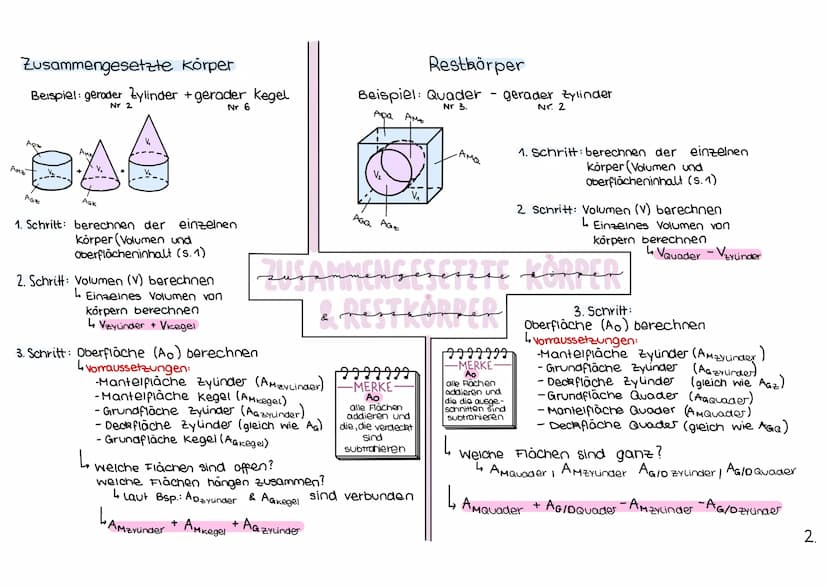 Zusammengesetzte Körper
Beispiel: gerader Zylinder + gerader Kegel
Nr 2
Nr 6
ADZ
AMZ
V2
AGZ
+
AMK
V1
AGK
=
V1
V2
1. Schritt: berechnen der einzelnen
Körper (Volumen und
Oberflächeninhalt (S. 1)
2. Schritt: Volumen (V) berechnen
↳ Einzelnes Volumen von
Körpern berechnen
↳ VZylinder + VKegel
3. Schritt: Oberfläche (AO) berechnen
↳ Vorraussetzungen:
-Mantelfläche Zylinder (AMZylinder)
-Mantelfläche Kegel (AMKegel)
-Grundfläche Zylinder (AGZylinder)
-Deckfläche Zylinder (gleich wie AG)
-Grundfläche Kegel (AGKegel)
↳ Welche Flächen sind offen?
Welche Flächen hängen zusammen?
↳ Laut Bsp.: ADZylinder & AGKegel sind verbunden
↳ AMZylinder + AMKegel + AGZylinder
MERKE
AO
alle Flächen
addieren und
die, die verdeckt
sind
subtrahieren
ZUSAMMENGESETZTE KÖRPER
zusammengesetzte körper
& RESTKÖRPER
& restkörper
Restkörper
Beispiel: Quader - gerader Zylinder
Nr 3.
Nr. 2
ADQ
AMZ
AMQ
V2
V1
AGQ
AGZ
1. Schritt: berechnen der einzelnen
Körper (Volumen und
Oberflächeninhalt (S. 1)
2 Schritt: Volumen (V) berechnen
↳ Einzelnes Volumen von
Körpern berechnen
↳ VQuader - VZylinder
3. Schritt:
Oberfläche (AO) berechnen
↳ Vorraussetzungen:
-Mantelfläche Zylinder (AMZylinder)
- Grundfläche Zylinder (AGZylinder)
- Deckfläche Zylinder (gleich wie AGZ)
-Grundfläche Quader (AGQuader)
- Mantelfläche Quader (AMQuader)
- Deckfläche Quader (gleich wie AGQ)
MERKE
AO
alle Flächen
addieren und
die die ausge-
schnitten sind
subtrahieren
↳ Welche Flächen sind ganz?
↳ AMQuader, AMZylinder AG/D Zylinder, AG/D Quader
↳ AMQuader + AG/D Quader - AMZylinder - AG/D Zylinder
2.